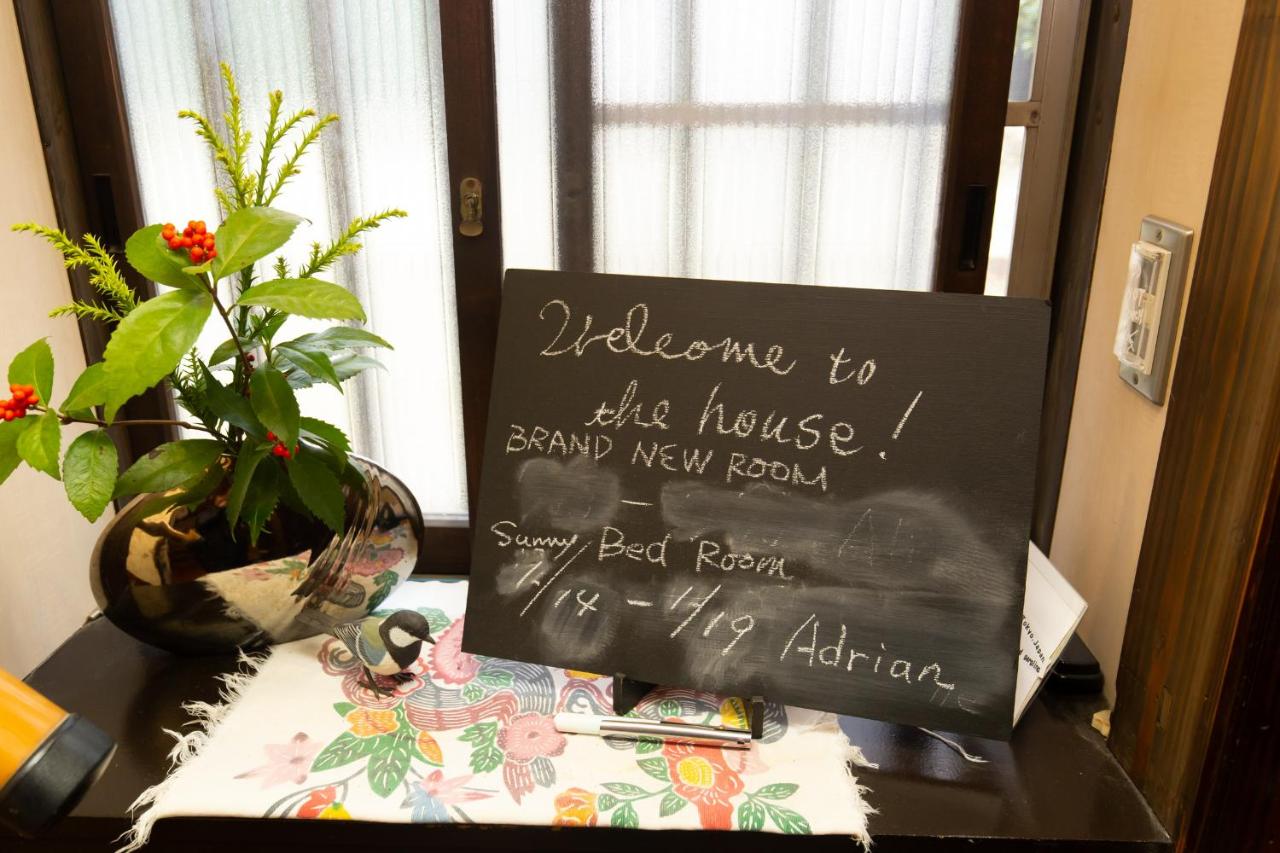 Welcome to
the house!
BRAND NEW ROOM
—
Sunny Bed Room
14 - 19 Adrian
Tokyo. Japan